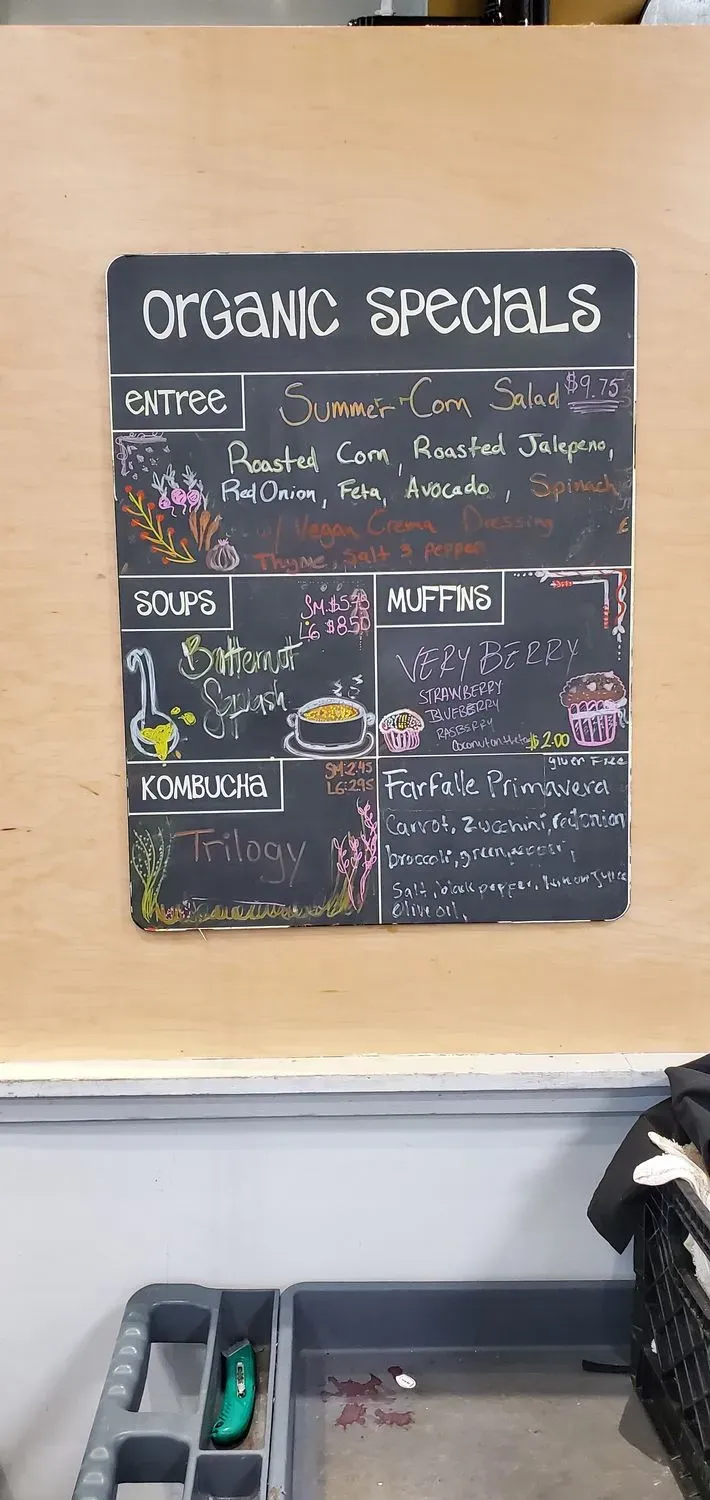 ORGANIC SPECIALS
ENTREE
Summer Corn Salad $9.75
Roasted Corn, Roasted Jalepeno,
Red Onion, Feta, Avocado, Spinach
w/ Vegan Crema Dressing
Thyme, Salt & Pepper
SOUPS
SM. $5.75
LG $8.50
Butternut
Squash
MUFFINS
VERY BERRY
STRAWBERRY
BLUEBERRY
RASBERRY
$2.00
gluten Free
KOMBUCHA
SM: 2.45
LG: 2.95
Trilogy
Farfalle Primavera
Carrot, Zucchini, red onion
broccoli, green pepper,
Salt, black pepper, lemon Juice
Olive oil,